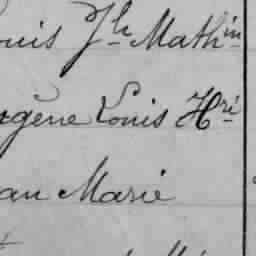 ouis Jh Mathin
ugène Louis Hri
an Marie